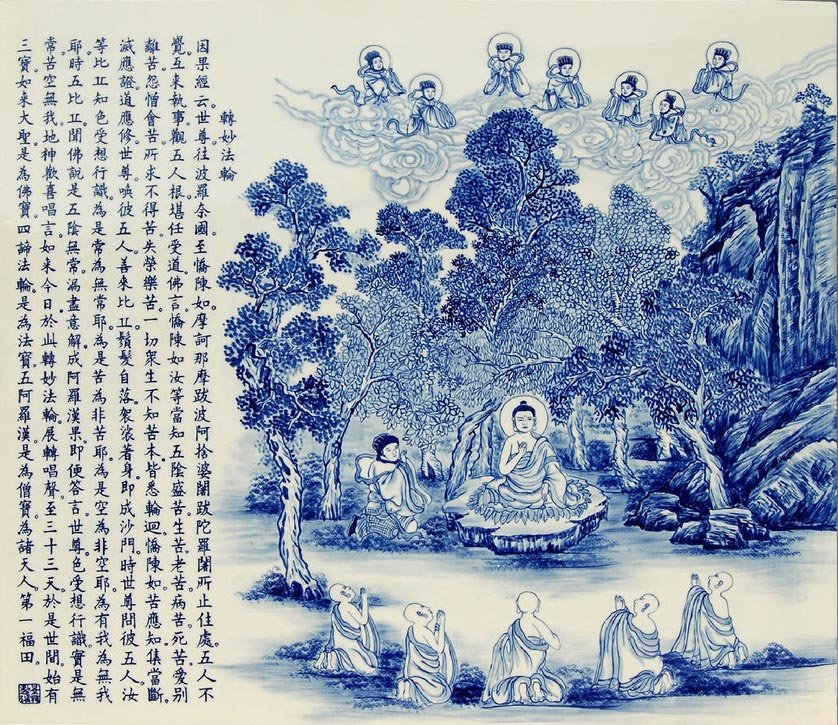 轉妙法輪
因果經云。世尊往波羅奈國至憍陳如摩訶那摩跋波阿捨婆闍跋陀羅闍所止住處。五人不
覺互來執事觀五人根堪任受道。佛言憍陳如汝等當知五陰盛苦生苦老苦病苦死苦愛別
離苦。怨憎會苦。所求不得苦。失榮樂苦。一切眾生不知苦本。皆悉輪迴。憍陳如苦應知集當斷。
滅應證道應修。世尊喚彼五人。善來比丘。鬚髮自落。袈裟著身。即成沙門。時世尊問彼五人。汝
等比丘知色受想行識。為是常為無常耶。為是苦為非苦耶。為是空為非空耶。為有我為無我
耶。時五比丘聞佛說是五陰無常。漏盡意解。成阿羅漢果。即便答言。世尊色受想行識。實是無
常苦空無我。地神歡喜唱言。如來今日於此轉妙法輪。展轉唱聲。至三十三天。於是世間始有
三寶。如來大聖。是為佛寶。四諦法輪。是為法寶。五阿羅漢。是為僧寶。為諸天人。第一福田。